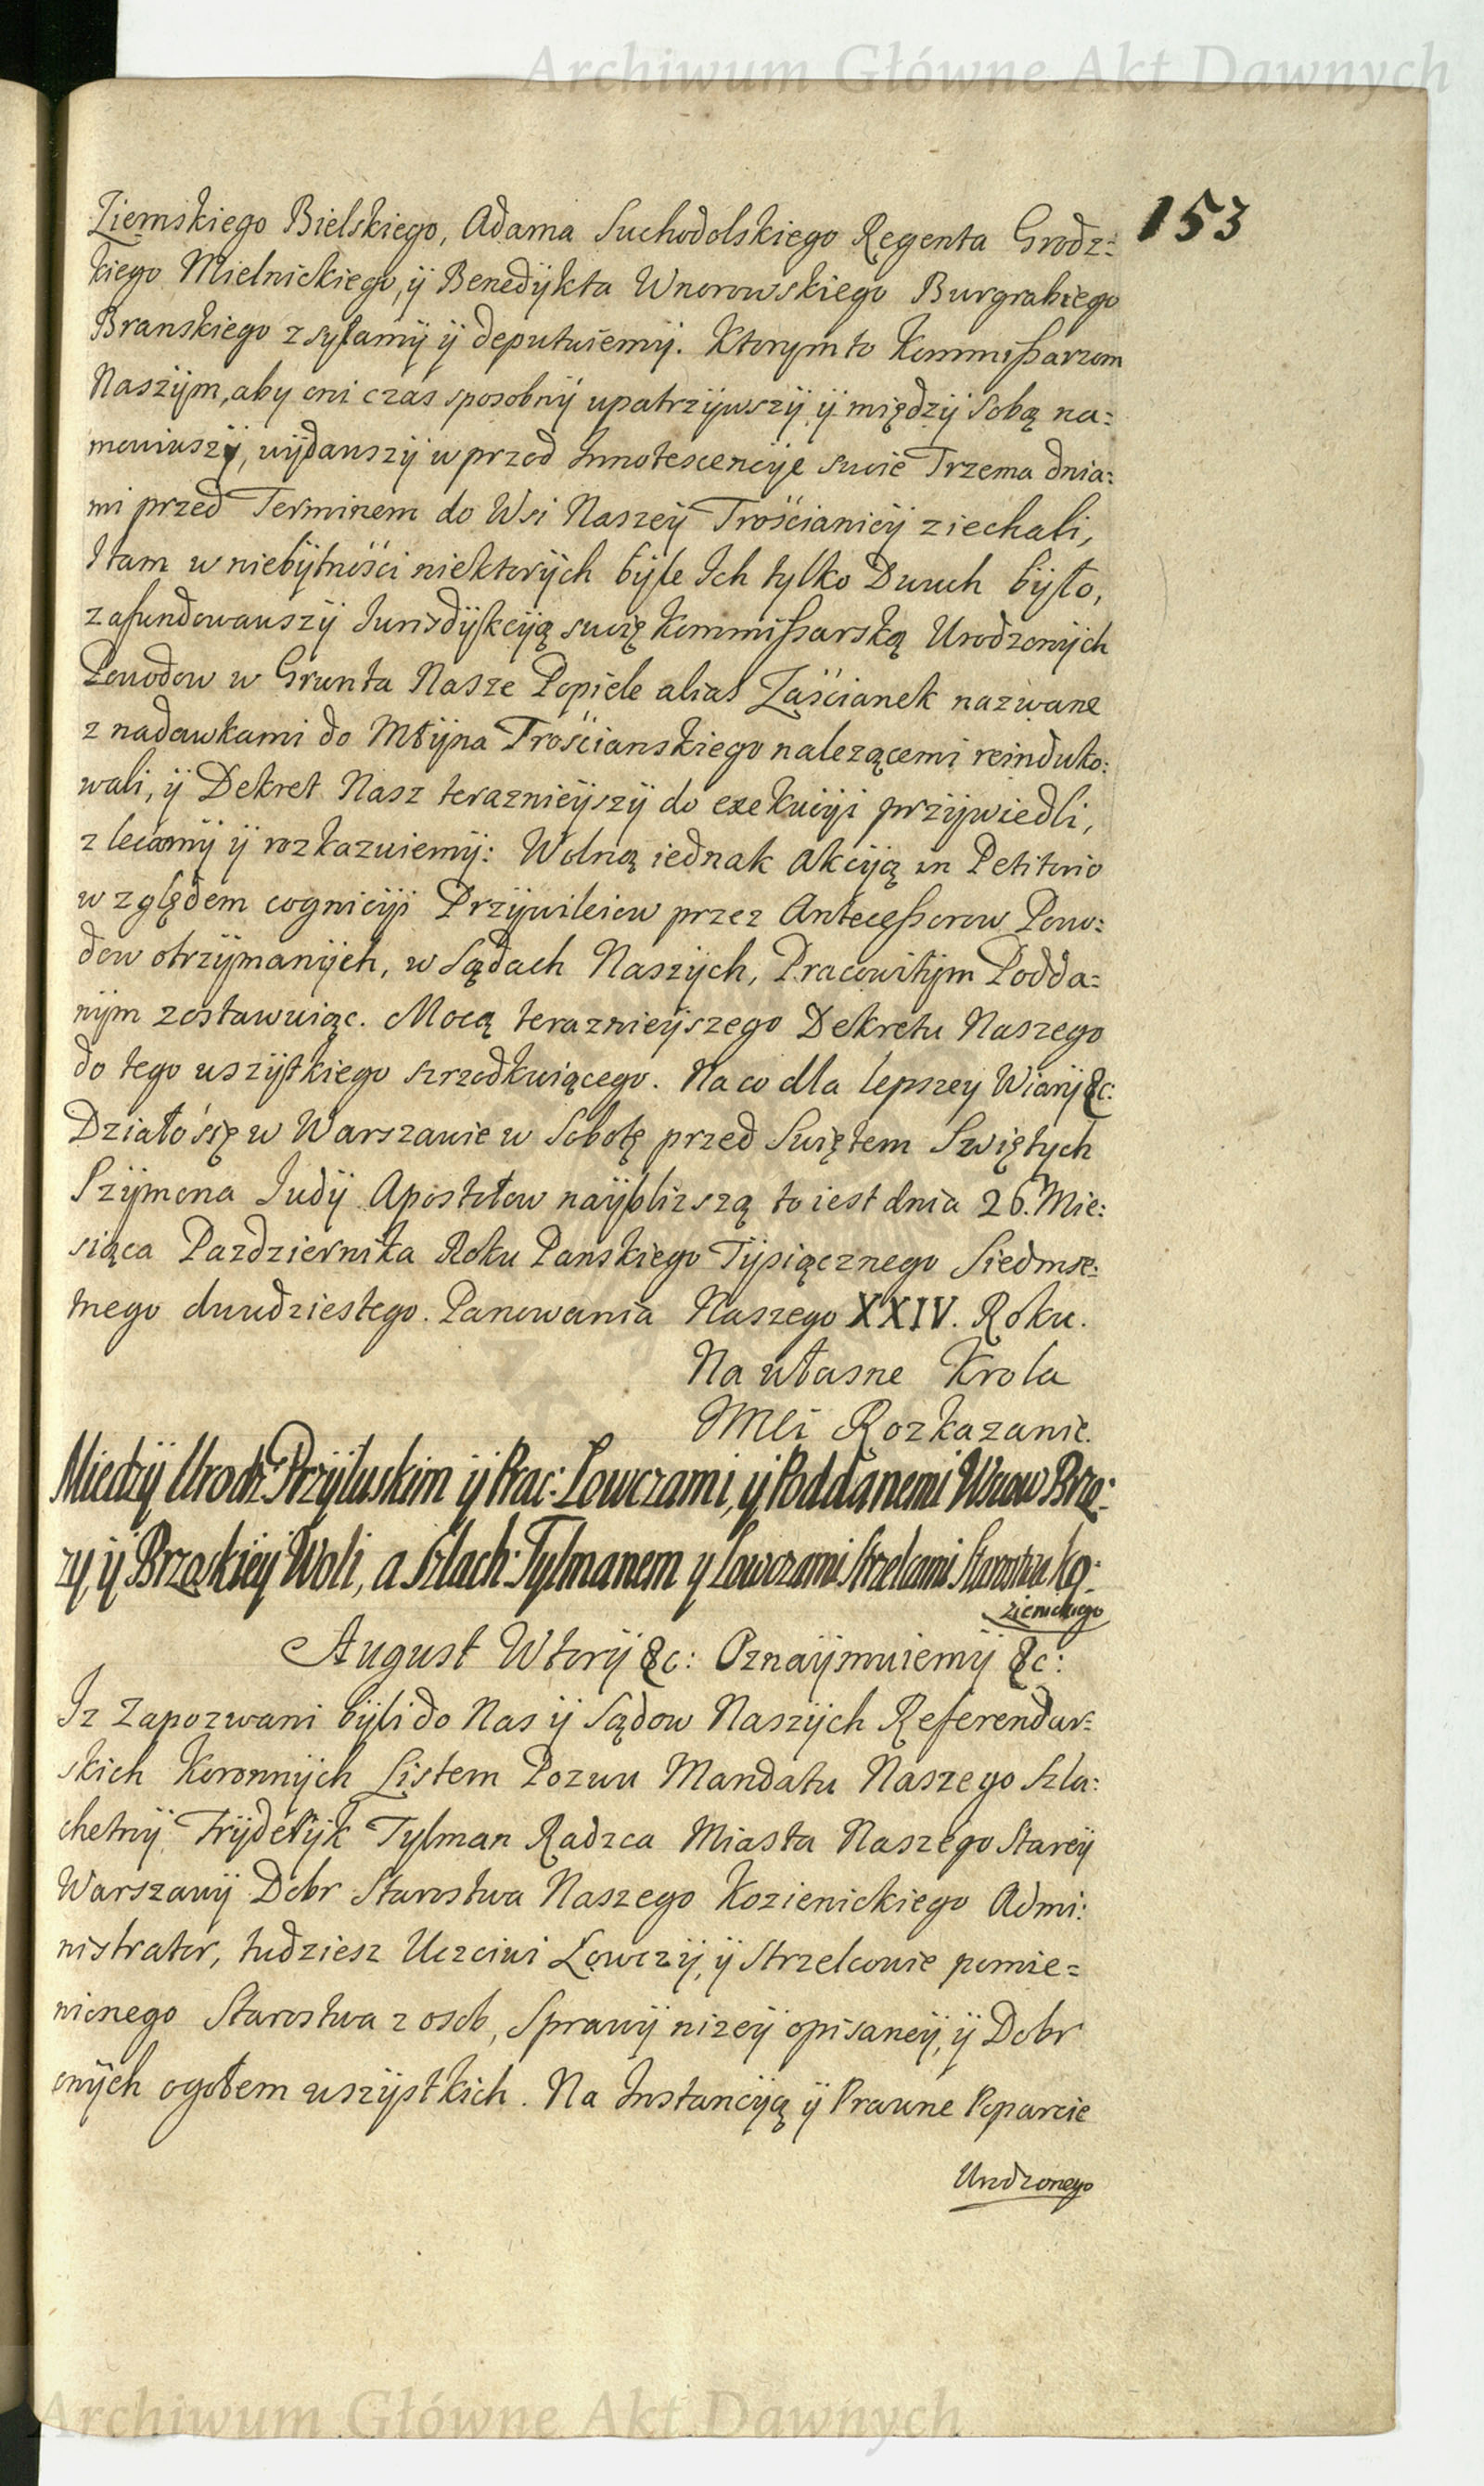 Archiwum Główne Akt Dawnych
153
Ziemskiego Bielskiego, Adama Suchodolskiego Regenta Grodz:
kiego Mielnickiego, ÿ Benedÿkta Wnorowskiego Burgrabiego
Branskiego zsyłamÿ ÿ deputuiemÿ. Ktorym to Kommißarzom
Naszÿm, aby oni czas sposobnÿ upatrzÿwszÿ ÿ międzÿ sobą na:
mowiwszÿ, wÿdawszÿ w przod Innotescencÿe swoie Trzema dnia:
mi przed Terminem do Wsi Naszeÿ Trościanicÿ ziechali,
I tam w niebÿtności niektorÿch bÿle Ich tylko Dwuch bÿło,
zafundowawszÿ Jurisdÿkcÿą swoię Kommißarską Urodzonÿch
Powodow w Grunta Nasze Popiele alias Zaścianek nazwane
z nadawkami do Młÿna Trościanskiego nalezącemi reinduko:
wali, ÿ Dekret Nasz teraznieÿszÿ do exekucÿi przÿwiedli,
zlecamÿ ÿ rozkazuiemÿ: Wolną iednak Akcÿą in Petitorio
względem cognicÿi Przÿwileiow przez Anteceßorow Powo:
dow otrzÿmanÿch, w Sądach Naszÿch, Pracowitÿm Podda:
nÿm zostawuiąc. Mocą teraznieÿszego Dekretu Naszego
do tego wszÿstkiego szrzodkuiącego. Na co dla lepszey Wiarÿ &c:
Działo się w Warszawie w Sobotę przed Swiętem Swiętych
Szÿmona Judÿ Apostołow naÿblizszą to iest dnia 26. Mie:
siąca Pazdziernika Roku Panskiego Tÿsiącznego Siedmse:
tnego dwudziestego. Panowania Naszego XXIV. Roku.
Na własne Krola
Mci Rozkazanie.
Miedzÿ Urodz: Przÿłuskim ÿ Prac: Lowczami, ÿ Poddanemi Wsiow Brzo:
zy, ÿ Brzoskieÿ Woli, a Szlach: Tylmanem y Lowczami Strzelcami Starostwa Ko:
zienickiego
August Wtorÿ &c: Oznaÿmuiemÿ &c:
Iz Zapozwani bÿli do Nas ÿ Sądow Naszÿch Referendar:
skich Koronnÿch Listem Pozwu Mandatu Naszego Szla:
chetnÿ Frÿderÿk Tylman Radzca Miasta Naszego Stareÿ
Warszawÿ Dobr Starostwa Naszego Kozienickiego Admi:
nistrator, tudziesz Uczciwi Łowczÿ, ÿ Strzelcowie pomie=
nionego Starostwa z osob, Sprawÿ nizeÿ opisaneÿ, ÿ Dobr
onÿch ogołem wszÿstkich. Na Instancÿą ÿ Prawne Poparcie
Urodzonego
Archiwum Główne Akt Dawnych